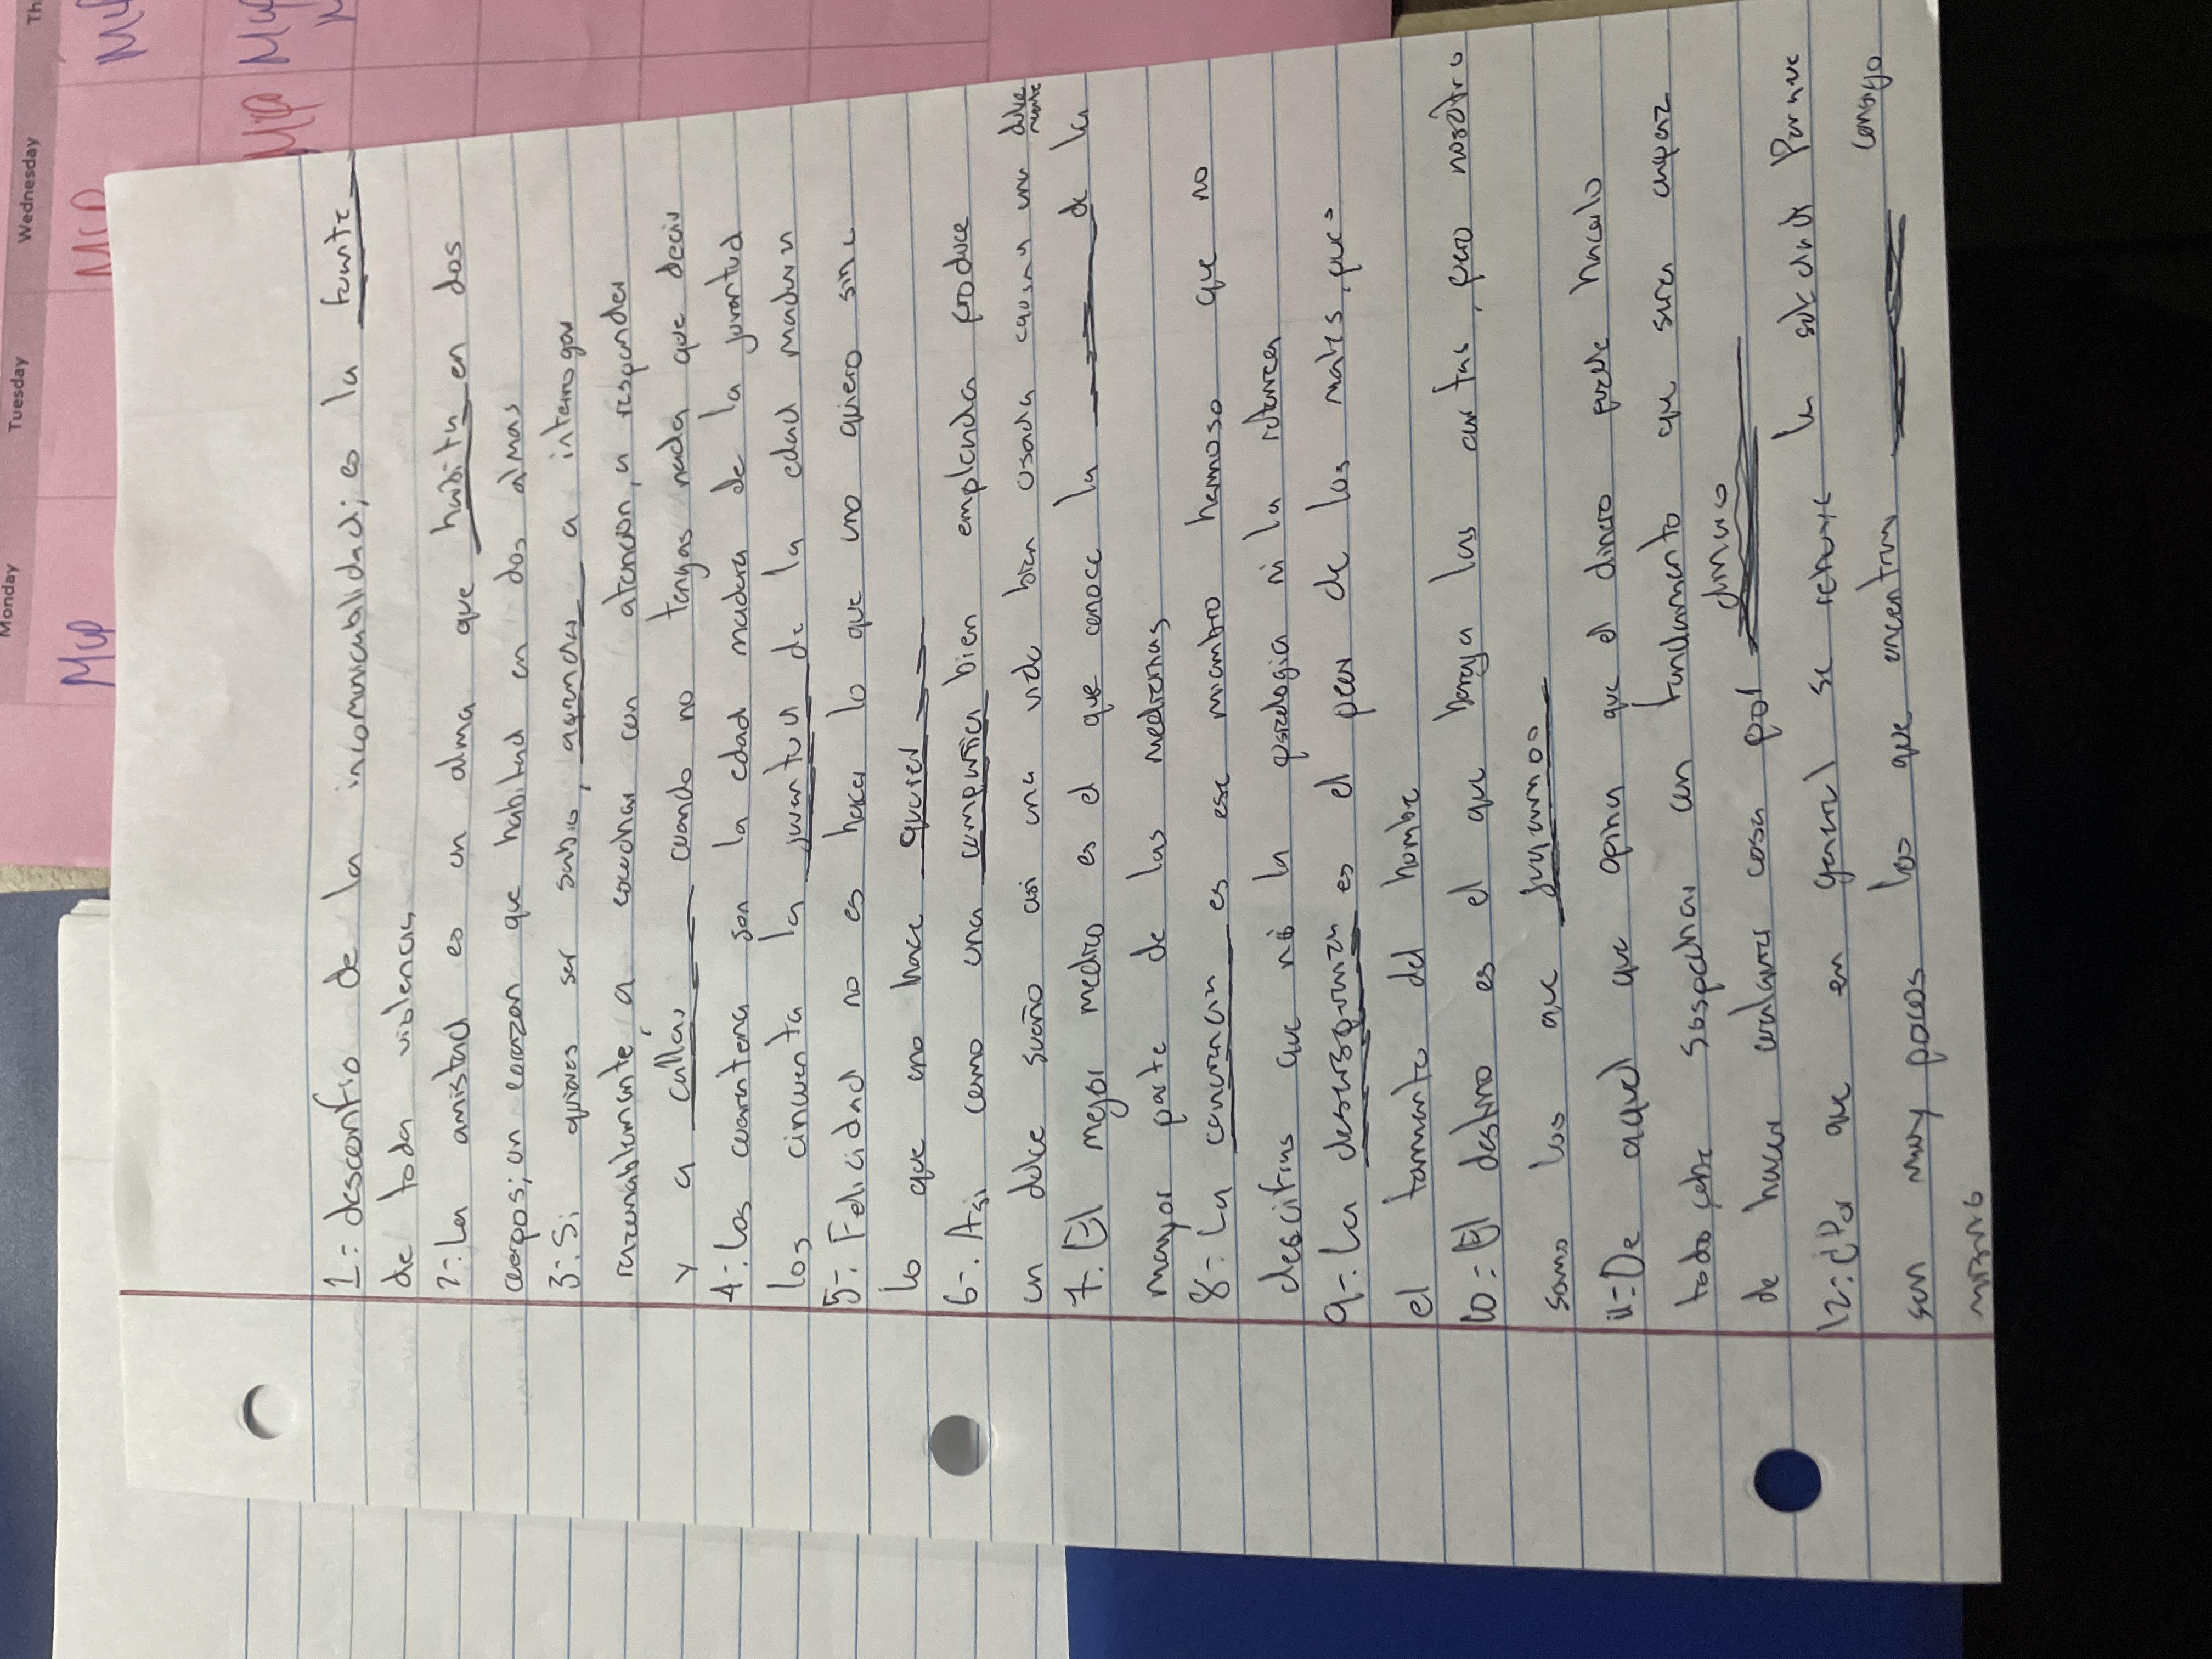 Monday
Tuesday
Wednesday
Th
MUP
1-. desconfio de la incomunicabilidad; es la fuente
de toda violencia.
2-. La amistad es un alma que habita en dos
cuerpos; un corazon que habitad en dos almas
3-. Si quieres ser sabio, aprender a interrogar
razonablemente, a escuchar con atencion, a responder
y a callar cuando no tengas nada que decir
4-. Los cuarentena son la edad madura de la juventud
los cincuenta la juventud de la edad madura
5-. Felicidad no es hacer lo que uno quiero sino
lo que uno hace querer
6-. Asi como una compañia bien emplenda produce
un dulce sueño asi una vida bien usada causa una dulce
muerte
7-. El mejor medico es el que conoce la de la
mayor parte de las medicinas
8-. La concurcion es ese miembro hermoso que no
descifras que ni la psicologia ni la retorica
9-. La desesperanza es el peor de los males, pues
el tamante del hombre
10-. El destino es el que baraja las cartas, pero nosotro
somo los que jugamos
11-. De aquel que opina que el dinero puede hacerlo
todo, cabe sospechar con fundamento que sera capaz
de hacer cualquier cosa por dinero
12-. ¿Por que en general se rehuye la soledad? Porque
son muy pocos los que encentran consigo
mismo